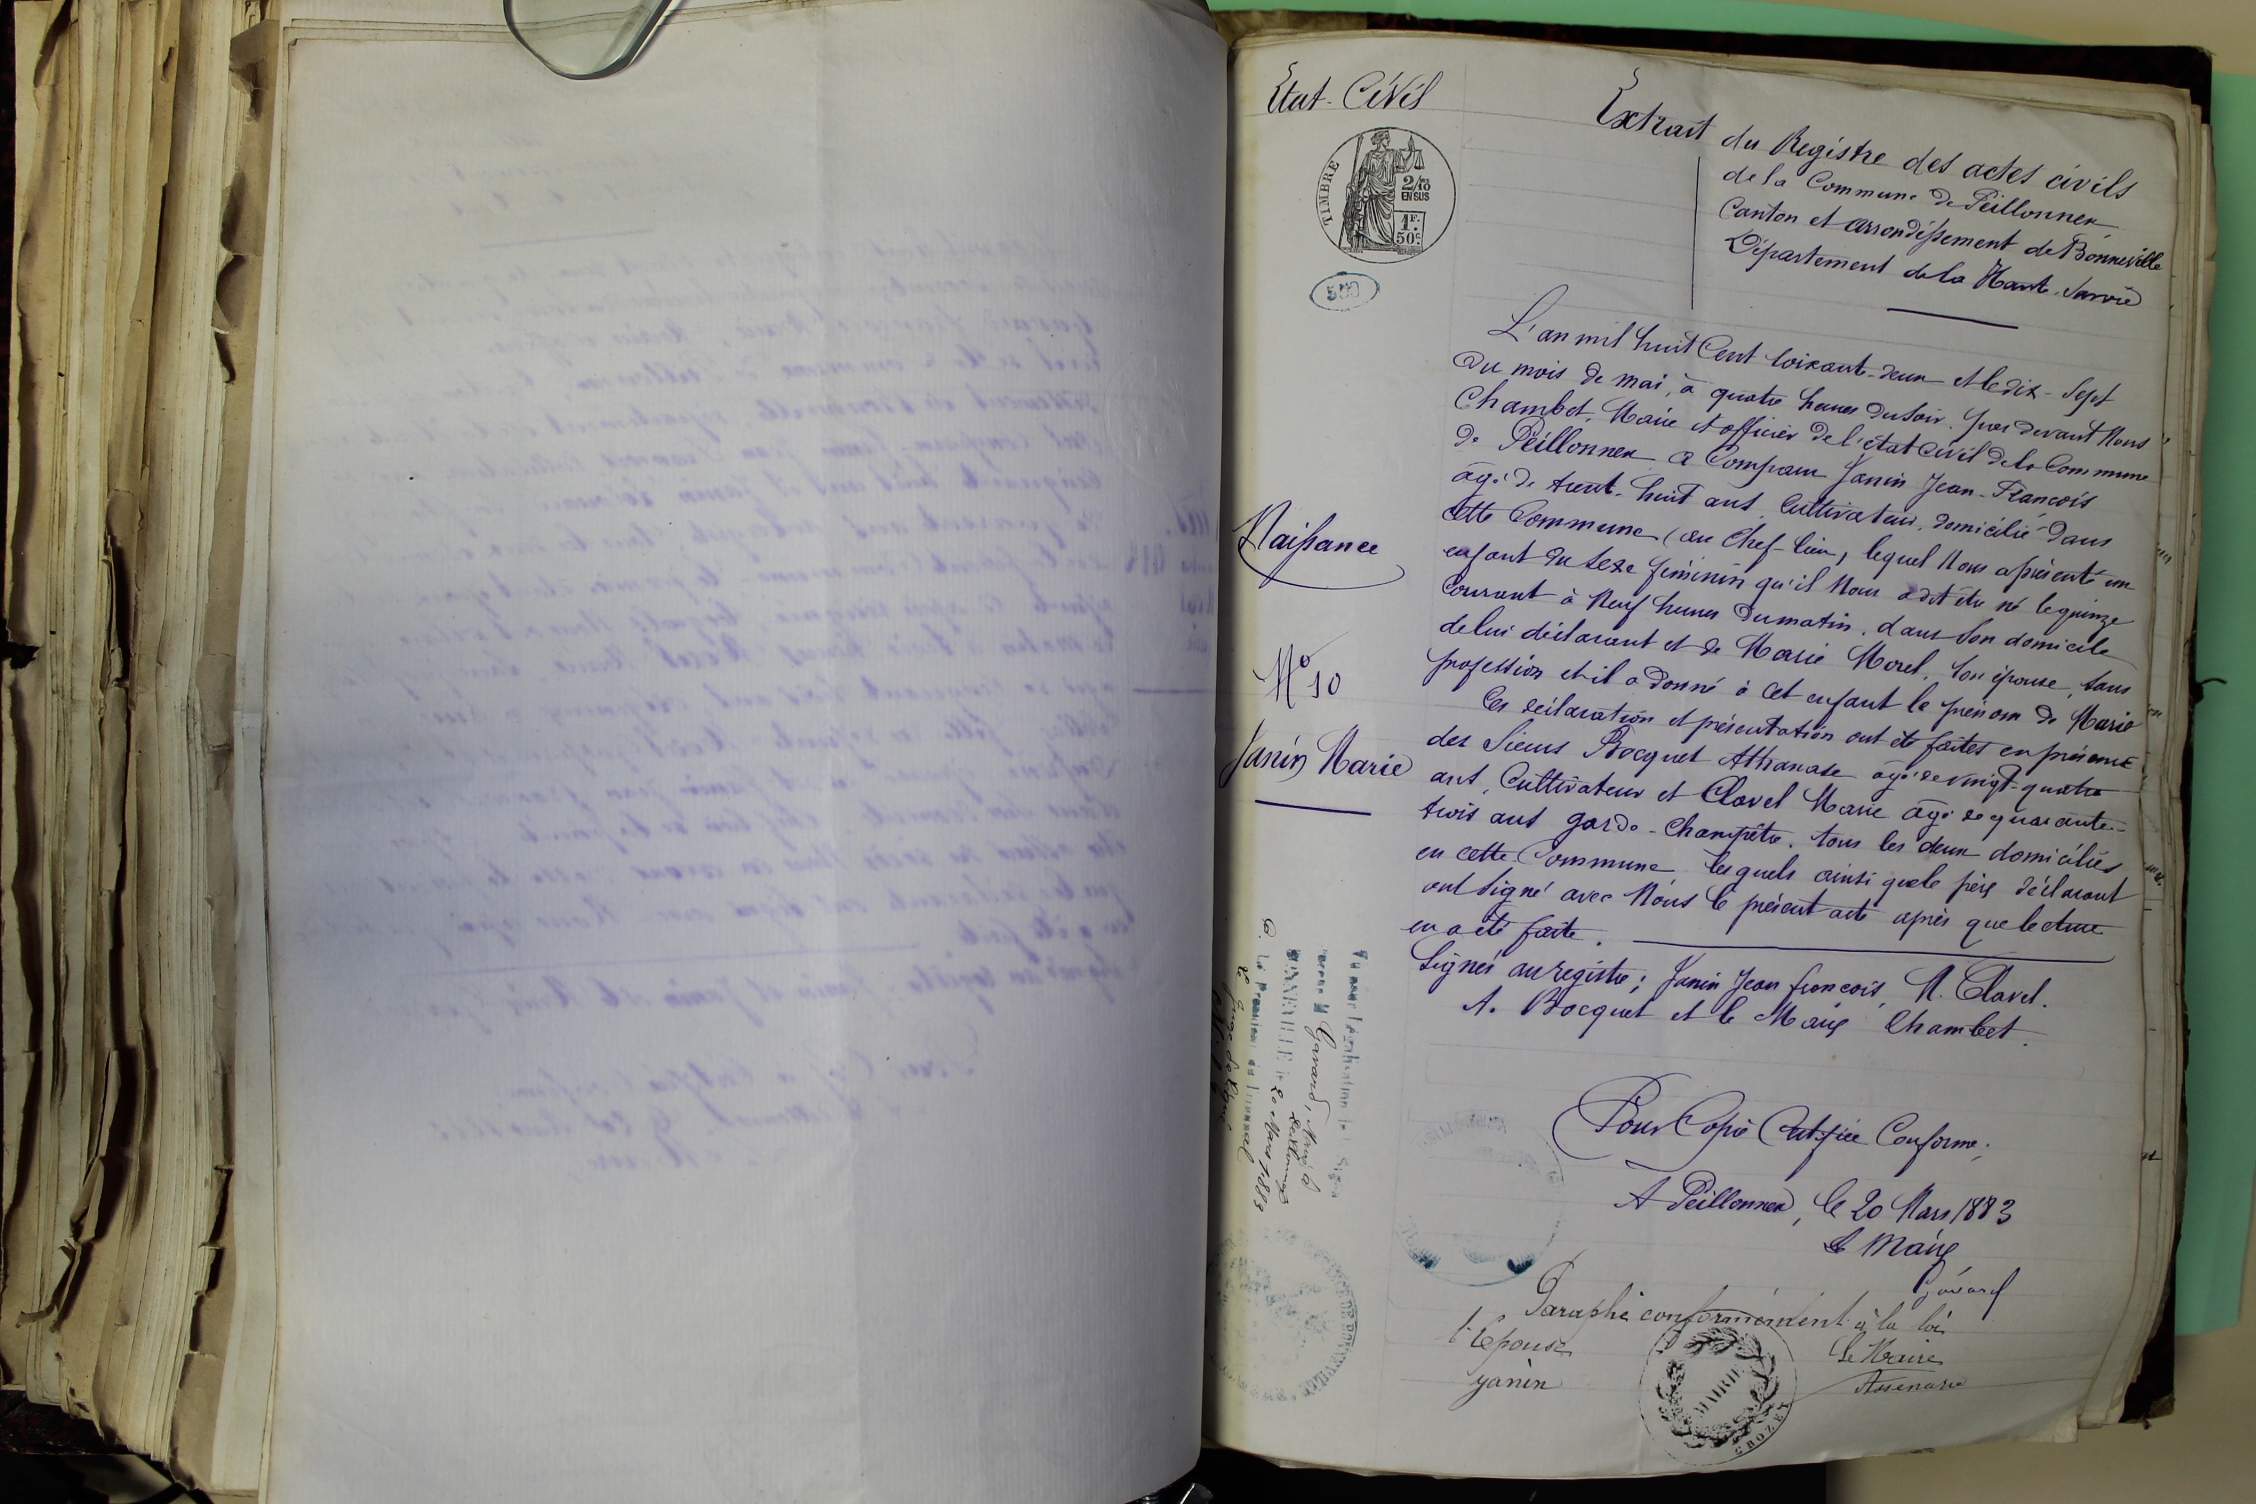 Etat-Civil
TIMBRE
2/10
EN SUS
1F.
50c.
Extrait du Registre des actes civils
de la Commune de Peillonnex
Canton et arrondissement de Bonneville
Département de la Haute-Savoie
L'an mil huit cent soixante-deux et le dix-sept
du mois de mai, à quatre heures du soir. Par devant Nous
Chambet, Maire et officier de l'état civil de la Commune
de Peillonnex a Comparu Janin Jean-François
âgé de trente-huit ans, Cultivateur, domicilié dans
cette Commune (au Chef-lieu, lequel Nous a présenté un
enfant du sexe féminin qu'il Nous a dit être né le quinze
courant à Neuf heures du matin, dans son domicile
de lui déclarant et de Marie Morel, son épouse, sans
profession et il a donné à cet enfant le prénom de Marie
Ces déclaration et présentation ont été faites en présence
des Sieurs Bocquet Athanase âgé de vingt-quatre
ans, Cultivateur et Clavel Marie âgé de quarante-
trois ans garde-champêtre, tous les deux domiciliés
en cette Commune lesquels ainsi que le père déclarant
ont signé avec Nous le présent acte après que lecture
en a été faite.
Signés au registre; Janin Jean françois, M. Clavel.
A. Bocquet et le Maire Chambet.
Naissance
No 10
Janin Marie
Pour Copie Certifiée Conforme.
A Peillonnex, le 20 Mars 1883
Le Maire
Gavard
Paraphé conformément à la loi
l'Epouse
Janin
Le Maire
MAIRIE
CROZET
Vu pour légalisation de la Signature
de M Gavard, Maire à
Peillonnex
BONNEVILLE le 20 Mars 1883
P. Le Président du Tribunal